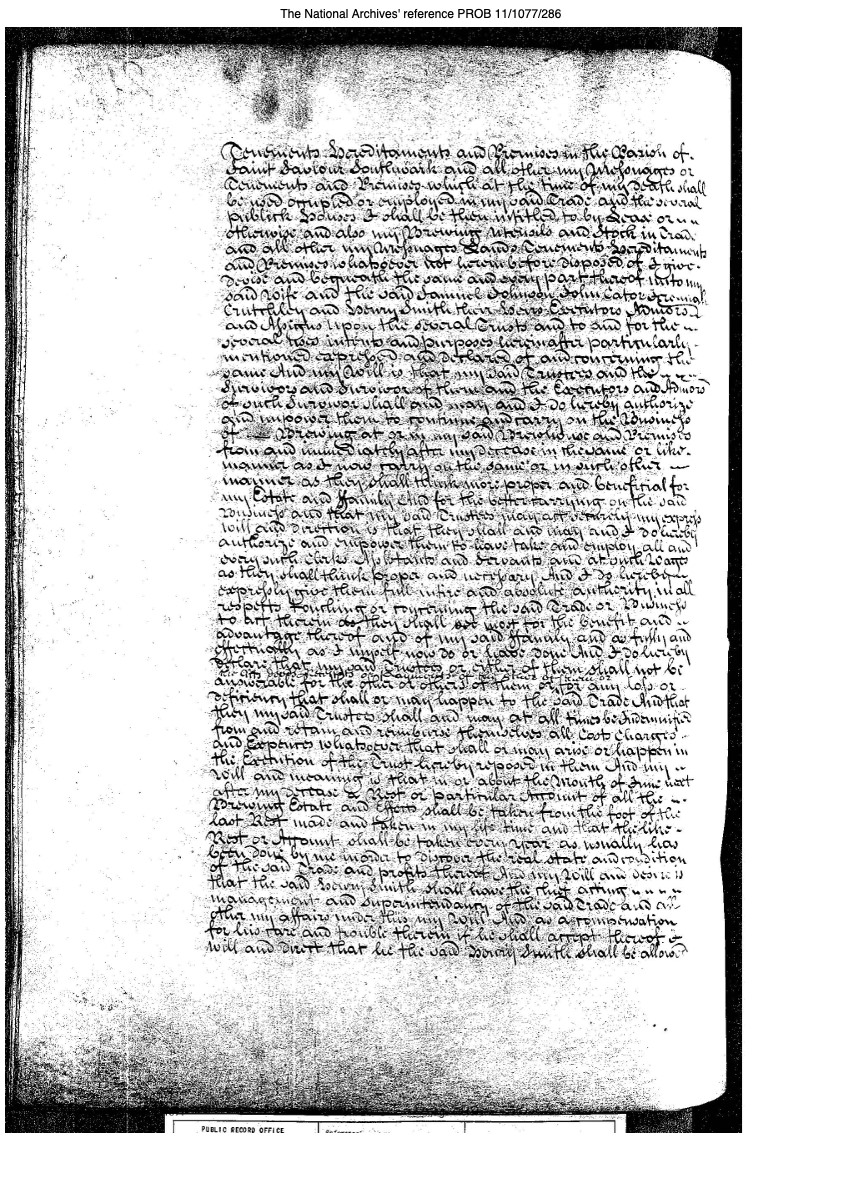 The National Archives' reference PROB 11/1077/286
Tenements Hereditaments and Premises in the Parish of
Saint Saviour Southwark and all other my Messuages or
Tenements and Premises which at the time of my Death shall
be used occupied or employed in my said Trade and the several
publick Houses I shall be then intitled to by Lease or
otherwise and also my Brewing Utensils and Stock in Trade
and all other my Messuages Lands Tenements Hereditaments
and Premises whatsoever not herein before disposed of I give
devise and bequeath the same and every part thereof unto my
said Wife and the said Samuel Johnson John Cator Jeremiah
Crutchley and Henry Smith their Heirs Executors Admors
and Assigns upon the several Trusts and to and for the
several uses intents and purposes herein after particularly
mentioned expressed and declared of and concerning the
same And my Will is that my said Trustees and the
Survivors and Survivor of them and the Executors and Admors
of such Survivor shall and may and I do hereby authorize
and impower them to continue and carry on the Business
of Brewing at or in my said Brewhouse and Premises
from and immediately after my Decease in the same or like
manner as I now carry on the same or in such other
manner as they shall think more proper and beneficial for
my Estate and Family And for the better carrying on the said
Business and that my said Trustees may act securely my express
Will and direction is that they shall and may and I do hereby
authorize and empower them to have take and employ all and
every such Clerks Assistants and Servants and at such Wages
as they shall think proper and necessary And I do hereby
expressly give them full intire and absolute authority in all
respects touching or concerning the said Trade or Business
to act therein as they shall see most for the benefit and
advantage thereof and of my said Family and as fully and
effectually as I myself now do or have done And I do hereby
declare that my said Trustees or either of them shall not be
answerable for the other or others of them or for any loss or
deficiency that shall or may happen to the said Trade And that
they my said Trustees shall and may at all times be Indemnified
from and retain and reimburse themselves all Cost Charges
and Expences whatsoever that shall or may arise or happen in
the Execution of the Trust hereby reposed in them And my
Will and meaning is that in or about the Month of June next
after my Decease a Rest or particular Account of all the
Brewing Estate and Effects shall be taken from the foot of the
last Rest made and taken in my life time and that the like
Rest or Account shall be taken every year as usually has
been done by me in order to discover the real state and condition
of the said Trade and profits thereof And my Will and desire is
that the said Henry Smith shall have the chief acting
management and Superintendancy of the said Trade and all
other my affairs under this my Will And as a compensation
for his care and trouble therein if he shall accept thereof I
Will and direct that he the said Henry Smith shall be allowed
PUBLIC RECORD OFFICE